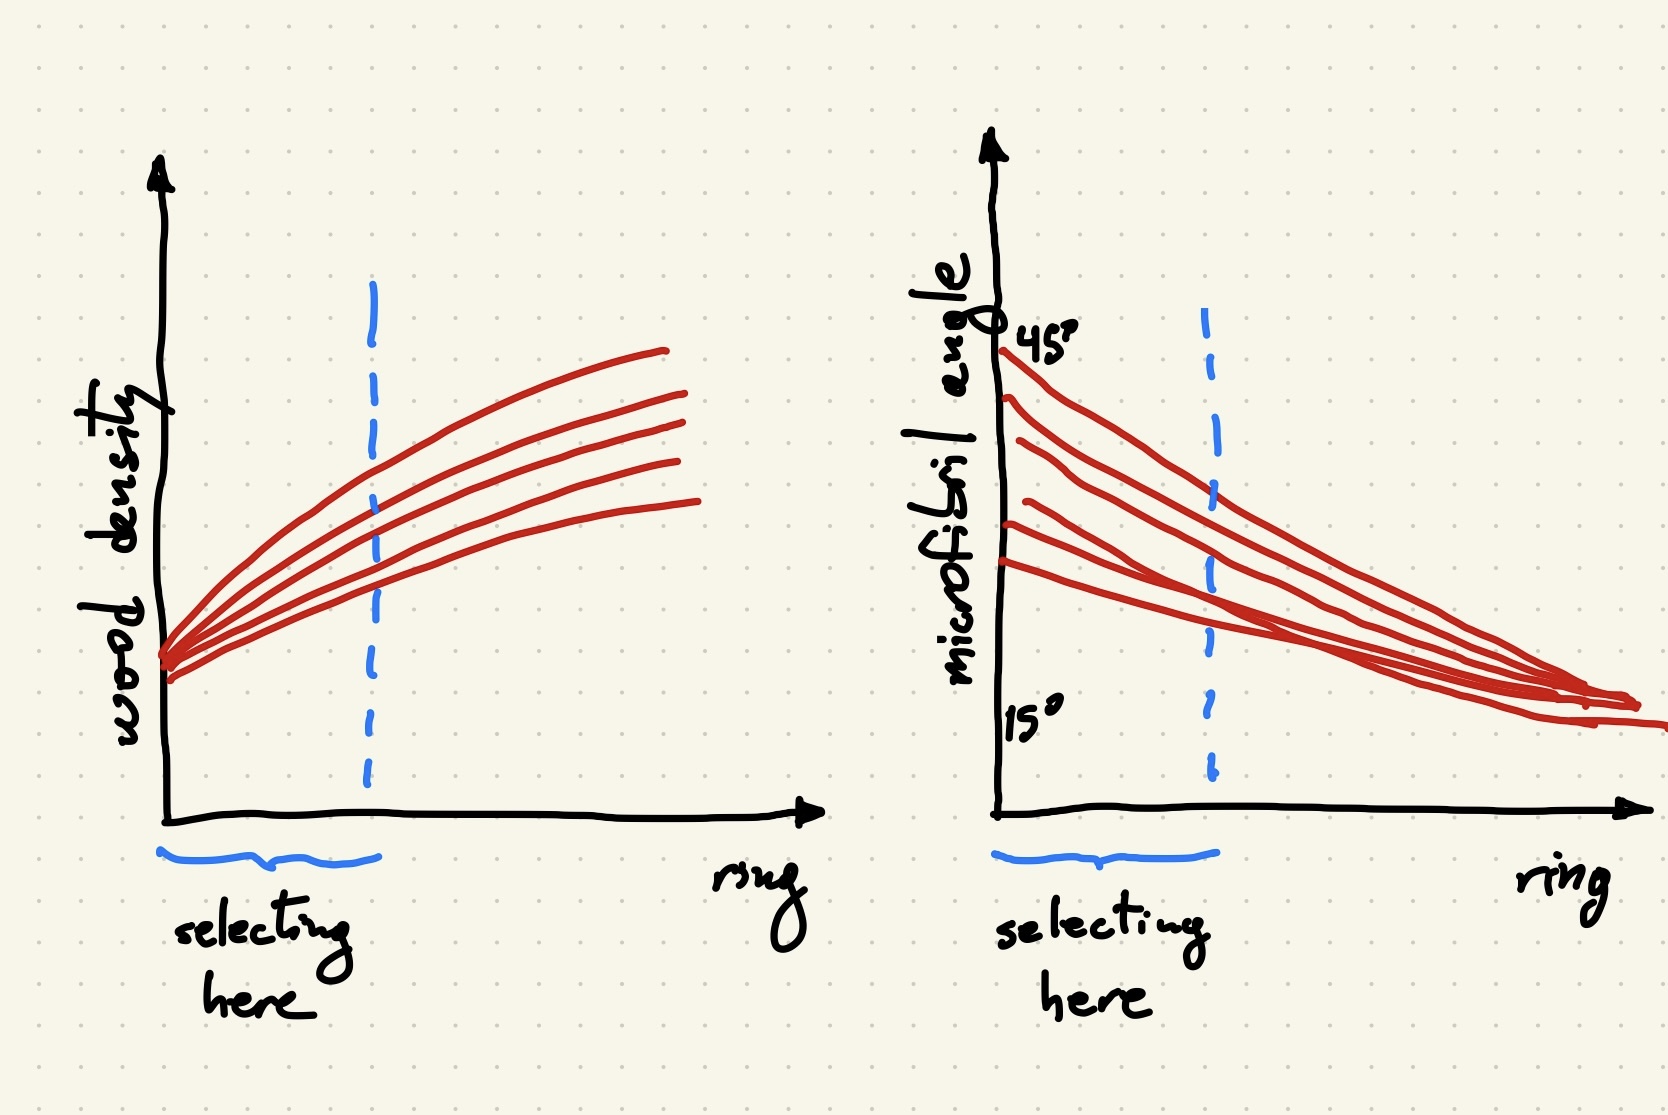 wood density
ring
selecting
here
microfibril angle
45°
15°
ring
selecting
here